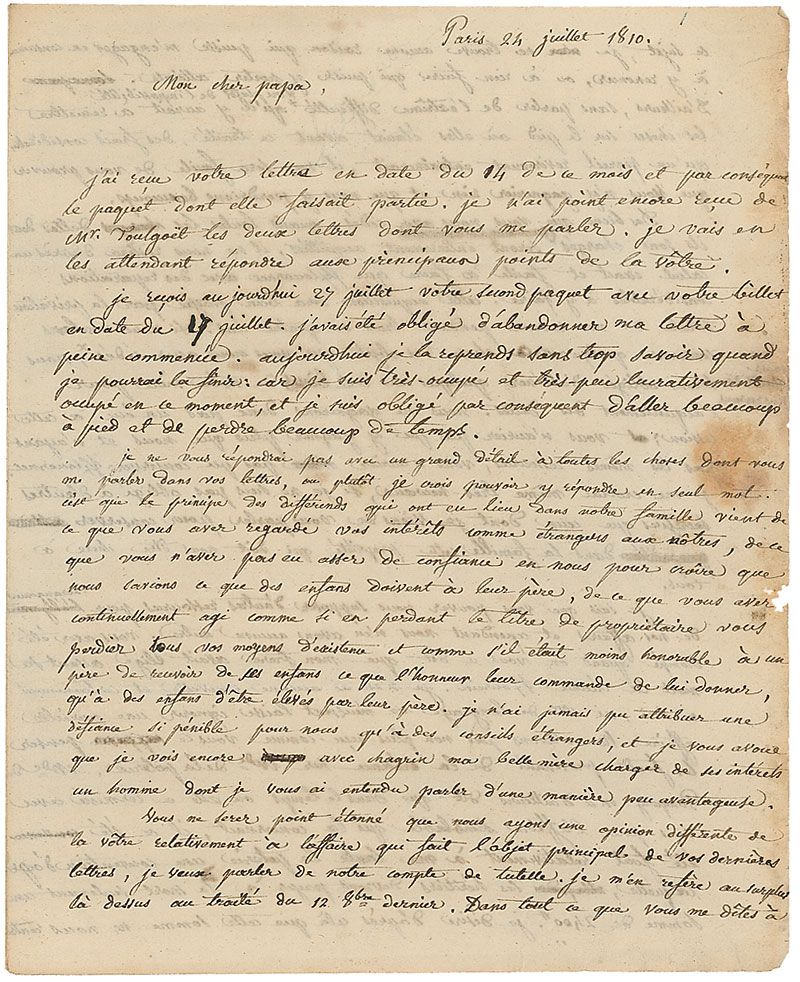 Paris 24 juillet 1810.
Mon cher papa,
j'ai recu votre lettre en date du 14 de ce mois et par conséquent
le paquét dont elle faisait partie. je n'ai point encore reçu de
Mr. Toulgoët les deux lettres dont vous me parler. je vais en
les attendant répondre aux principaux points de la vôtre.
je reçois aujourdhui 27 juillet votre second paquet avec votre billet
en date du 17 juillet. j'avais été obligé d'abandonner ma lettre à
peine commencée. aujourdhui je la reprends sans trop savoir quand
je pourrai la finir: car je suis très-occupé et très-peu lucrativement
occupé en ce moment, et je suis obligé par conséquent d'aller beaucoup
a pied et de perdre beaucoup de temps.
je ne vous répondrai pas avec un grand détail à toutes les choses dont vous
me parler dans vos lettres, ou plutôt je crois pouvoir y répondre en seul mot..
c'est que le principe des différends qui ont eu lieu dans notre famille vient de
ce que vous aver regardé vos intérêts comme étrangers aux nôtres, de ce
que vous n'aver pas eu asser de confiance en nous pour croire que
nous savions ce que des enfans doivent à leur père, de ce que vous aver
continuellement agi comme si en perdant le titre de propriétaire vous
perdier tous vos moyens d'existence et comme s'il était moins honorable à un
père de recevoir de ses enfans ce que l'honneur leur commande de lui donner,
qu'à des enfans d'être élevés par leur père. je n'ai jamais pu attribuer une
défiance si pénible pour nous qu'à des conseils étrangers, et je vous avoue
que je vois encore avec chagrin ma belle mère charger de ses intérêts
un homme dont je vous ai entendu parler d'une manière peu avantageuse.
Vous ne serer point étonné que nous ayons une opinion différente de
la vôtre relativement à l'affaire qui fait l'objet principal de vos dernières
lettres, je veux parler de notre compte de tutelle. je m'en refère au surplus
là dessus au traité du 12 8bre dernier. Dans tout ce que vous me dîtes à